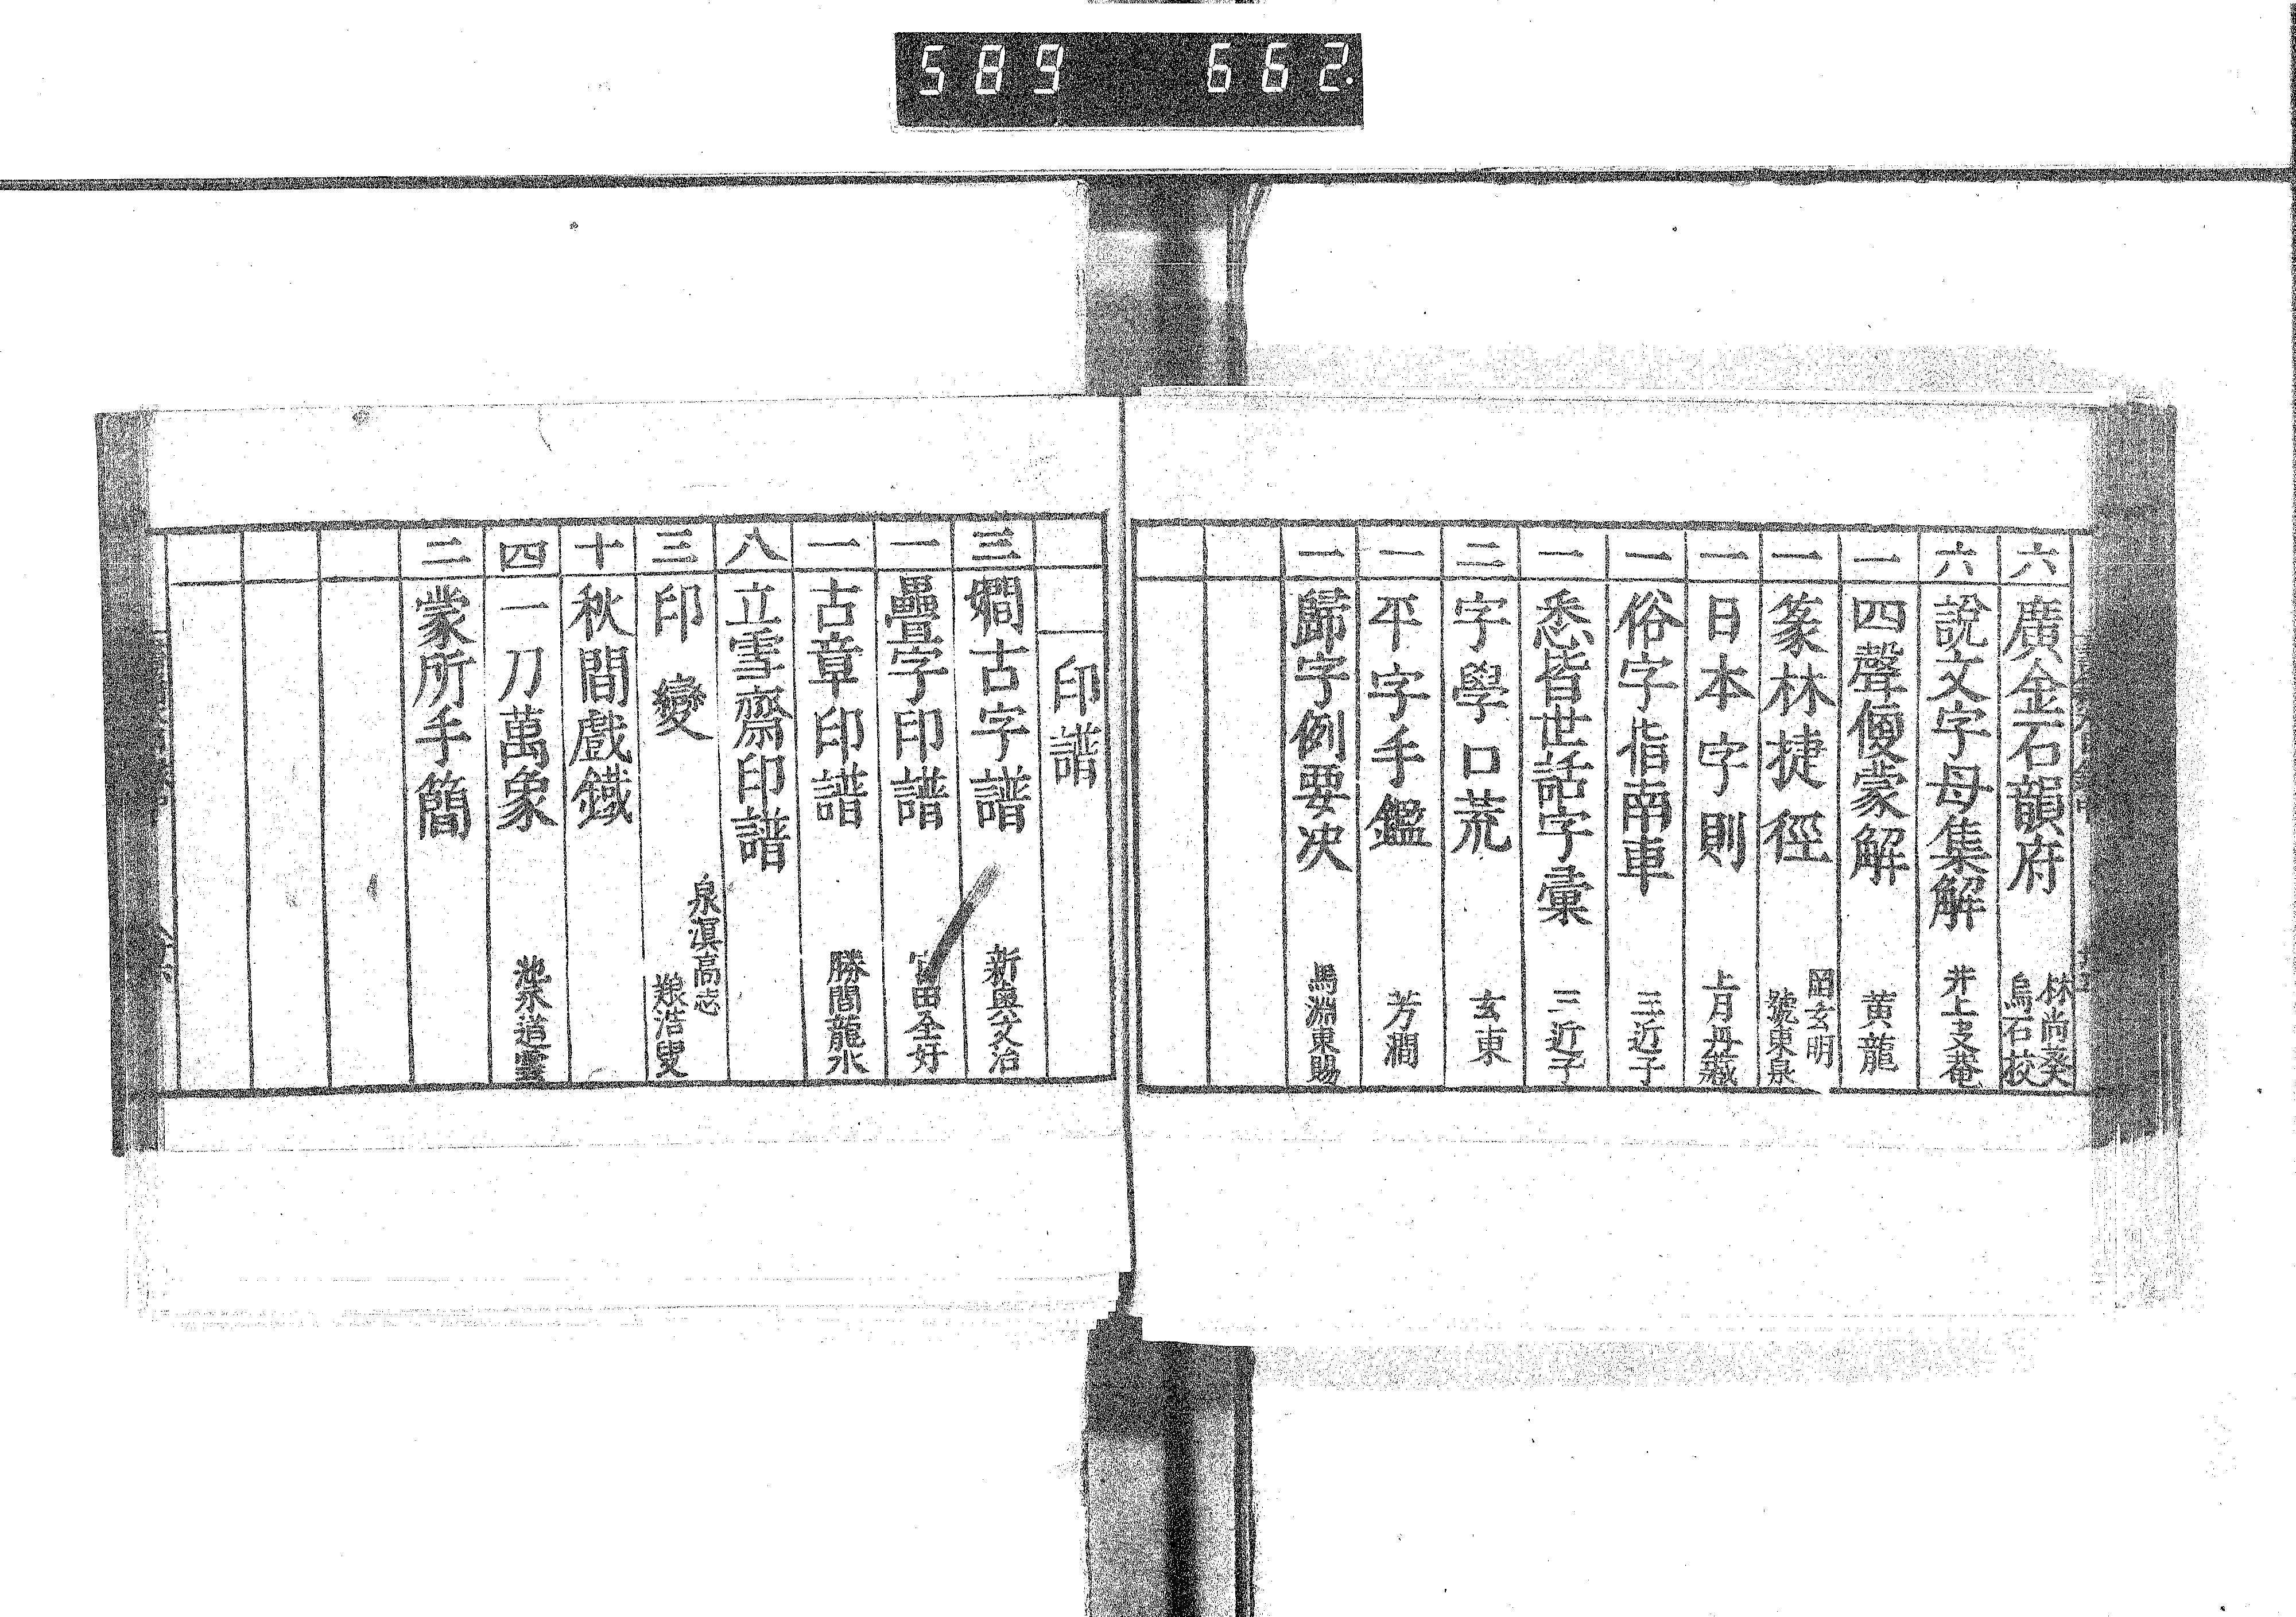 589 662.
六 廣金石韻府 林尚葵 烏石校
六 說文字母集解 井上支菴
一 四聲便蒙解 黄龍
一 篆林捷徑 岡玄明 號東泉
一 日本字則 上月丹蔵
一 俗字指南車 三近子
一 悉皆世話字彙 三近子
二 字學口荒 玄東
一 平字手鑑 芳澗
一 歸字例要决 馬淵東賜
印譜
三 嫺古字譜 新興文治
一 疊字印譜 田全好
一 古章印譜 勝間龍水
八 立雪齋印譜
三 印變 泉溟高志 浩叟
十 秋間戲鐵
四 一刀萬象 池永道雲
二 蒙所手簡